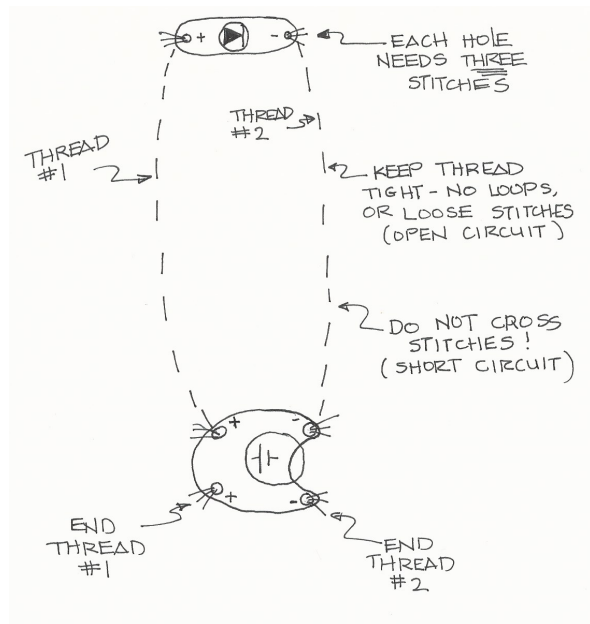 + -
EACH HOLE
NEEDS THREE
STITCHES
THREAD
#2
THREAD
#1
KEEP THREAD
TIGHT - NO LOOPS,
OR LOOSE STITCHES
(OPEN CIRCUIT)
DO NOT CROSS
STITCHES!
(SHORT CIRCUIT)
+ -
+ -
END
THREAD
#1
END
THREAD
#2